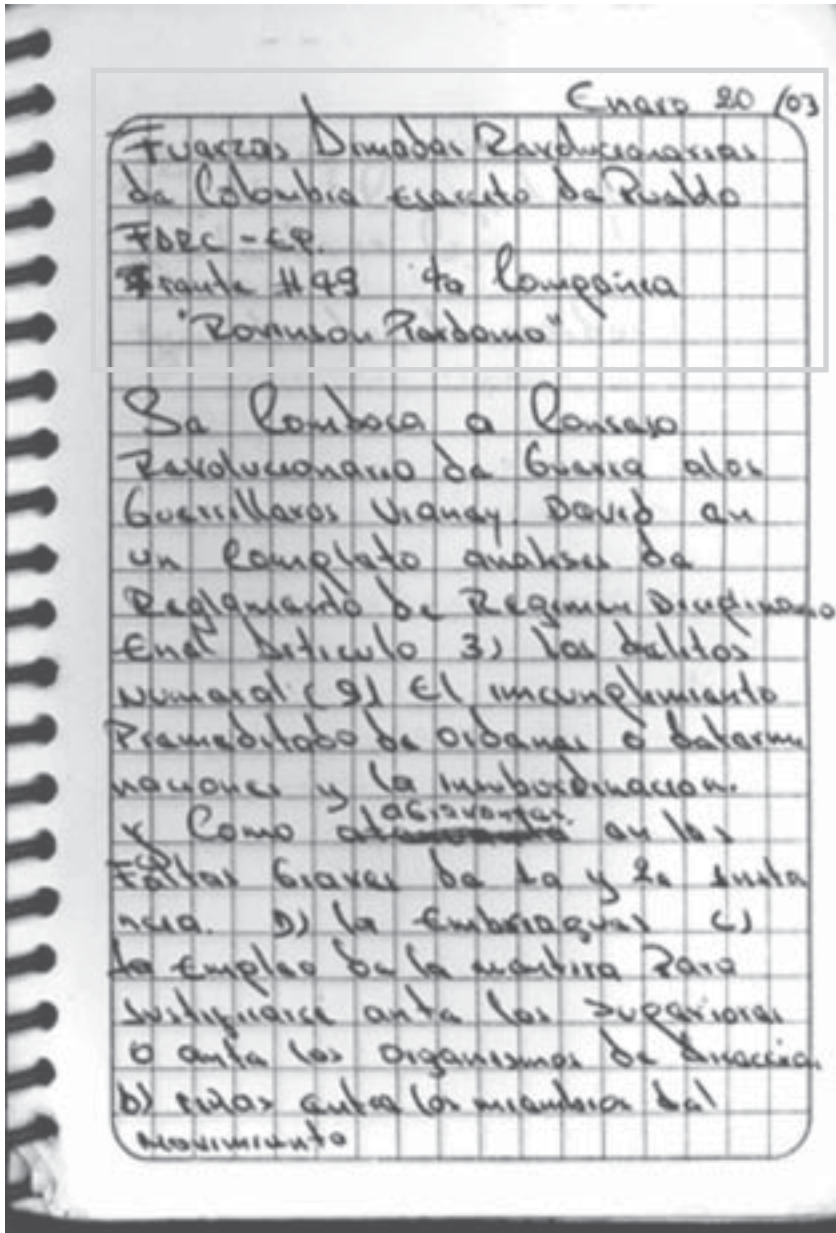 Enero 20 /03
Fuerzas Armadas Revolucionarias
de Colombia Ejercito de Pueblo
FARC-EP.
Frente #49 1a Compañia
"Rovinson Perdomo"
Se Comboca a Consejo
Revolucionario de Guerra alos
Guerrilleros Vianey. David en
un Completo analisis de
Reglamento de Regimen Disciplinario
Enel Articulo 3) los delitos
Numeral (9) El imcunplimiento
Premeditado de ordenes o determi
naciones y la insubordinacion.
y Como agravantes en las
Faltas Graves de 1a y 2a Insta
ncia. D) la Embriagues C)
Empleo de la mentira Para
Justificarce ante los Superiores
o ante los organismos de direccion.
b) riñas entre los miembros del
movimiento